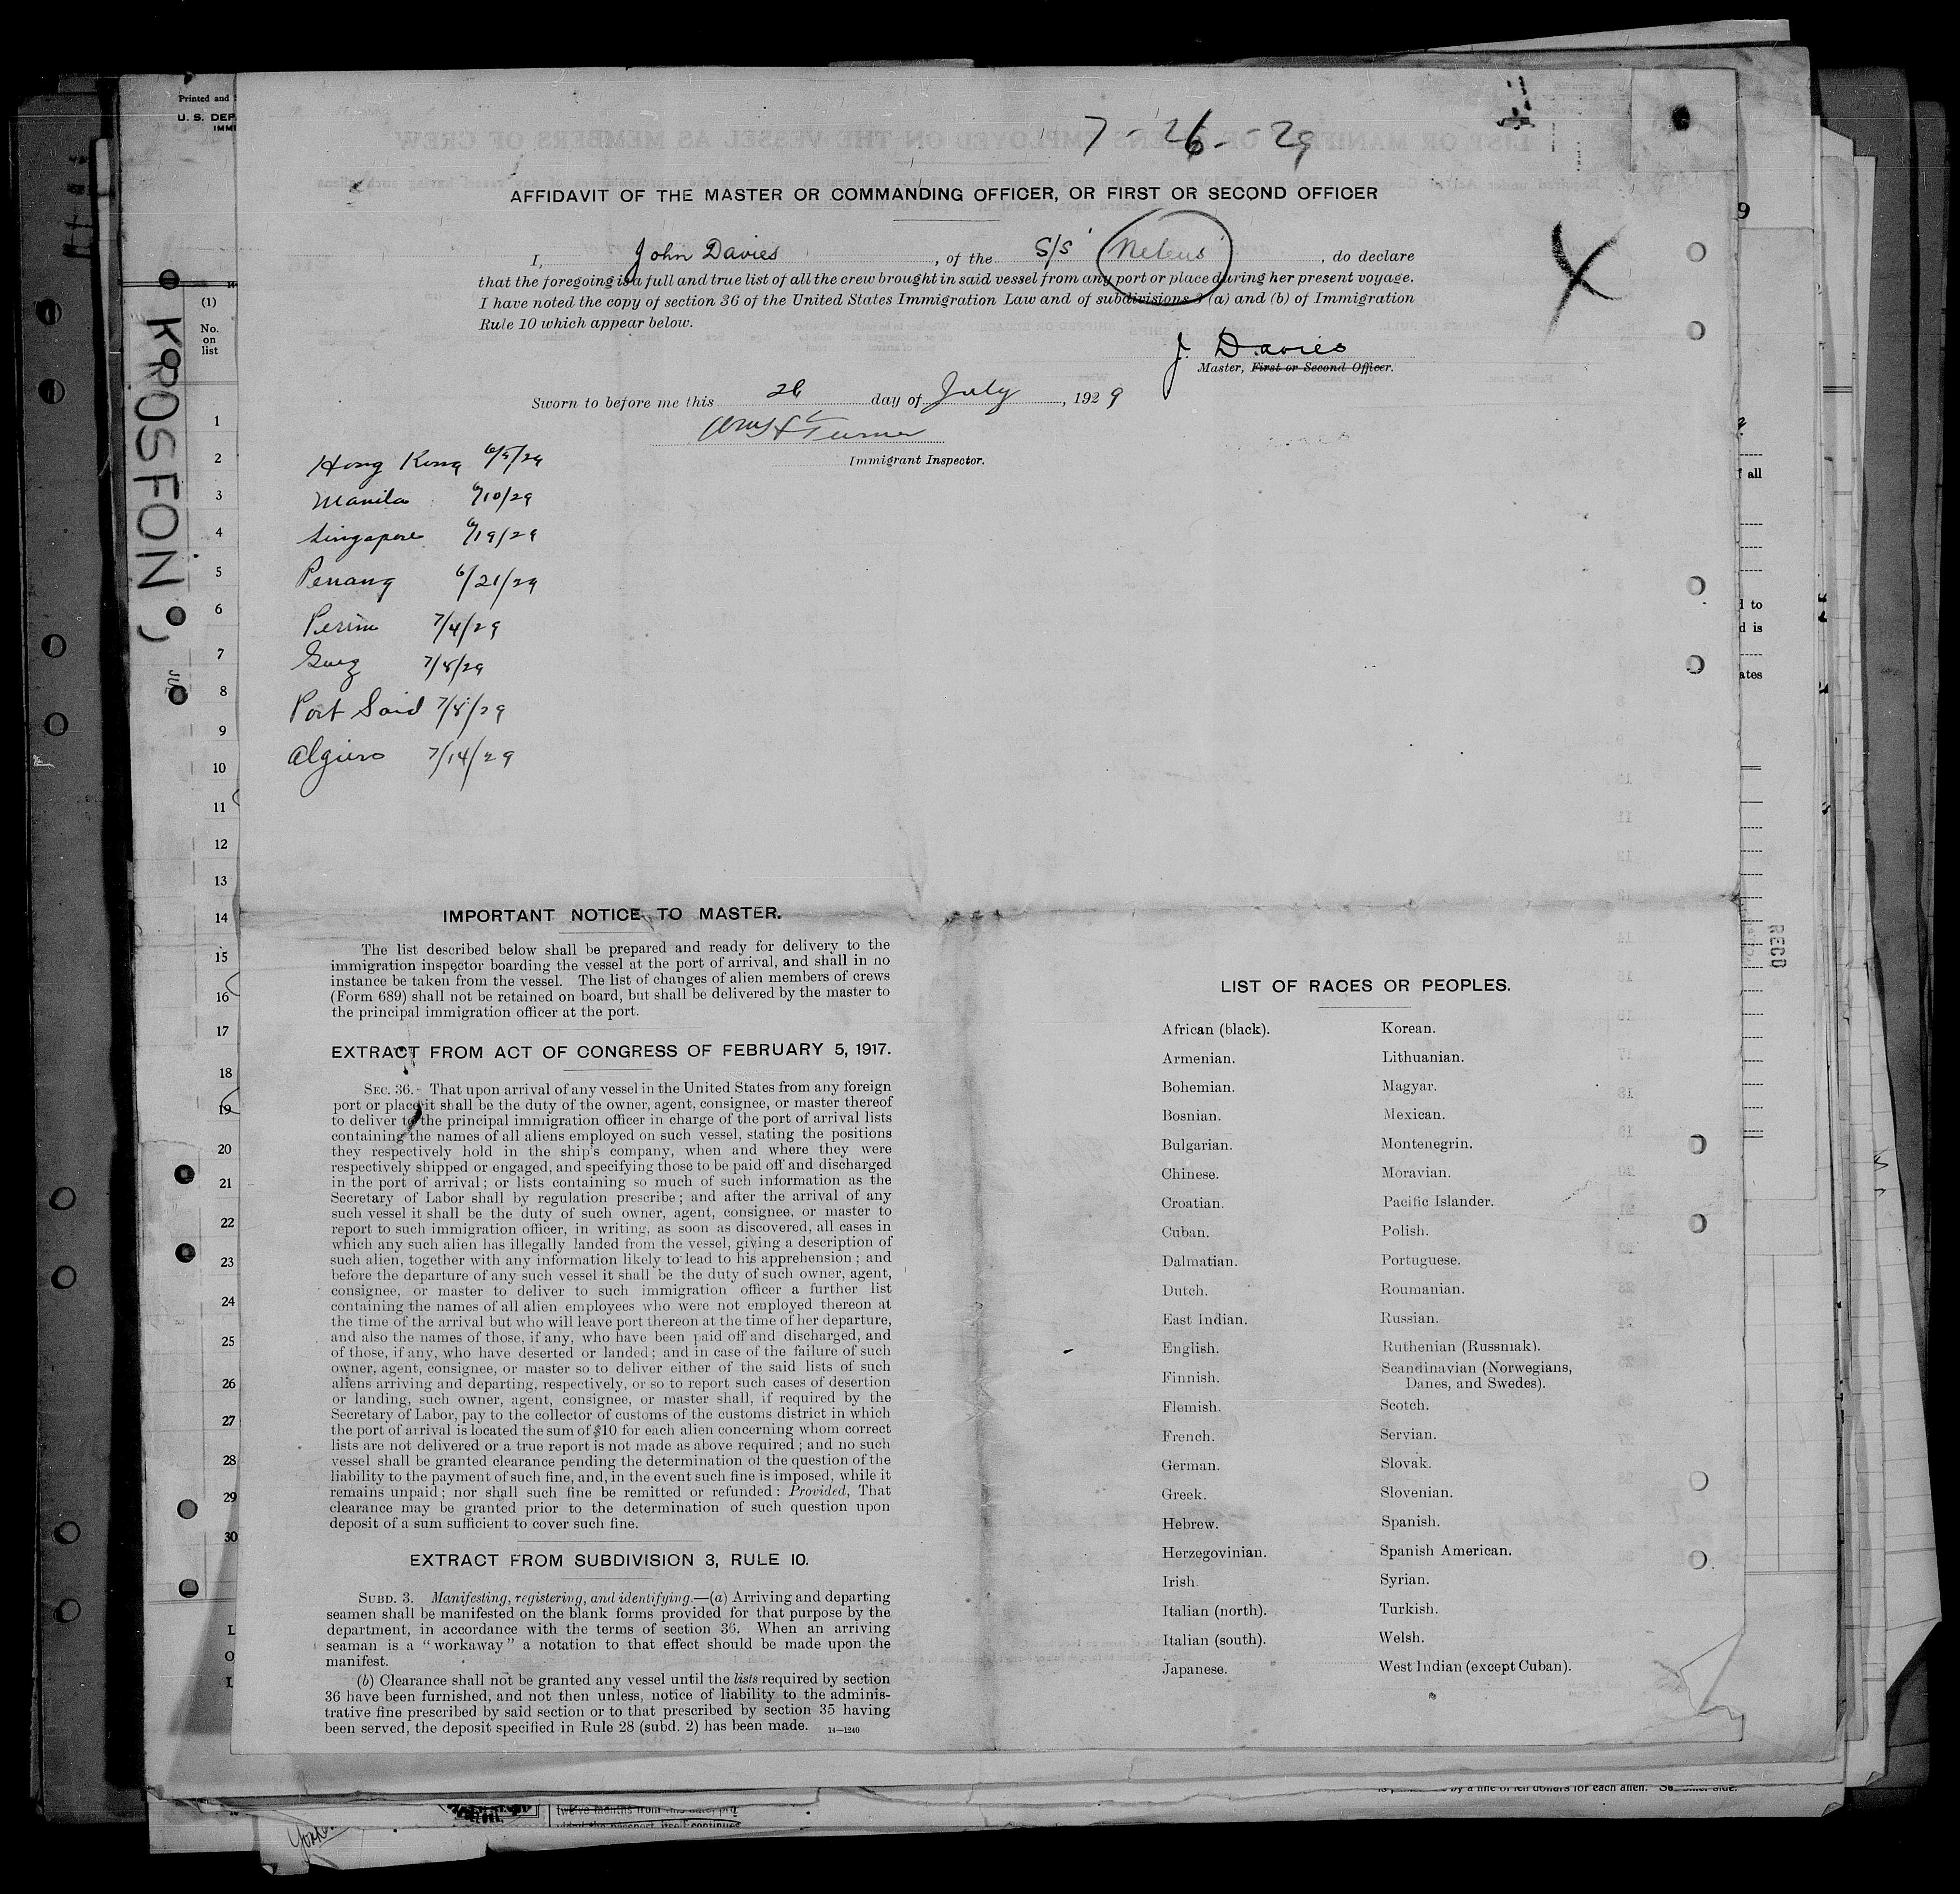 7-26-29
AFFIDAVIT OF THE MASTER OR COMMANDING OFFICER, OR FIRST OR SECOND OFFICER
I, John Davies, of the S/S Neleus, do declare
that the foregoing is a full and true list of all the crew brought in said vessel from any port or place during her present voyage.
I have noted the copy of section 36 of the United States Immigration Law and of subdivisions 3 (a) and (b) of Immigration
Rule 10 which appear below.
J. Davies
Master, First or Second Officer.
Sworn to before me this 26 day of July, 1929
Turner
Immigrant Inspector.
Hong Kong 6/5/29
Manila 6/10/29
Singapore 6/19/29
Penang 6/21/29
Perim 7/4/29
Suez 7/8/29
Port Said 7/8/29
Algiers 7/14/29
IMPORTANT NOTICE TO MASTER.
The list described below shall be prepared and ready for delivery to the
immigration inspector boarding the vessel at the port of arrival, and shall in no
instance be taken from the vessel. The list of changes of alien members of crews
(Form 689) shall not be retained on board, but shall be delivered by the master to
the principal immigration officer at the port.
EXTRACT FROM ACT OF CONGRESS OF FEBRUARY 5, 1917.
SEC. 36. That upon arrival of any vessel in the United States from any foreign
port or place it shall be the duty of the owner, agent, consignee, or master thereof
to deliver to the principal immigration officer in charge of the port of arrival lists
containing the names of all aliens employed on such vessel, stating the positions
they respectively hold in the ship's company, when and where they were
respectively shipped or engaged, and specifying those to be paid off and discharged
in the port of arrival; or lists containing so much of such information as the
Secretary of Labor shall by regulation prescribe; and after the arrival of any
such vessel it shall be the duty of such owner, agent, consignee, or master to
report to such immigration officer, in writing, as soon as discovered, all cases in
which any such alien has illegally landed from the vessel, giving a description of
such alien, together with any information likely to lead to his apprehension; and
before the departure of any such vessel it shall be the duty of such owner, agent,
consignee, or master to deliver to such immigration officer a further list
containing the names of all alien employees who were not employed thereon at
the time of the arrival but who will leave port thereon at the time of her departure,
and also the names of those, if any, who have been paid off and discharged, and
of those, if any, who have deserted or landed; and in case of the failure of such
owner, agent, consignee, or master so to deliver either of the said lists of such
aliens arriving and departing, respectively, or so to report such cases of desertion
or landing, such owner, agent, consignee, or master shall, if required by the
Secretary of Labor, pay to the collector of customs of the customs district in which
the port of arrival is located the sum of $10 for each alien concerning whom correct
lists are not delivered or a true report is not made as above required; and no such
vessel shall be granted clearance pending the determination of the question of the
liability to the payment of such fine, and, in the event such fine is imposed, while it
remains unpaid; nor shall such fine be remitted or refunded: Provided, That
clearance may be granted prior to the determination of such question upon
deposit of a sum sufficient to cover such fine.
EXTRACT FROM SUBDIVISION 3, RULE 10.
SUBD. 3. Manifesting, registering, and identifying.—(a) Arriving and departing
seamen shall be manifested on the blank forms provided for that purpose by the
department, in accordance with the terms of section 36. When an arriving
seaman is a "workaway" a notation to that effect should be made upon the
manifest.
(b) Clearance shall not be granted any vessel until the lists required by section
36 have been furnished, and not then unless, notice of liability to the adminis-
trative fine prescribed by said section or to that prescribed by section 35 having
been served, the deposit specified in Rule 28 (subd. 2) has been made. 14—1240
LIST OF RACES OR PEOPLES.
African (black).
Armenian.
Bohemian.
Bosnian.
Bulgarian.
Chinese.
Croatian.
Cuban.
Dalmatian.
Dutch.
East Indian.
English.
Finnish.
Flemish.
French.
German.
Greek.
Hebrew.
Herzegovinian.
Irish.
Italian (north).
Italian (south).
Japanese.
Korean.
Lithuanian.
Magyar.
Mexican.
Montenegrin.
Moravian.
Pacific Islander.
Polish.
Portuguese.
Roumanian.
Russian.
Ruthenian (Russniak).
Scandinavian (Norwegians,
Danes, and Swedes).
Scotch.
Servian.
Slovak.
Slovenian.
Spanish.
Spanish American.
Syrian.
Turkish.
Welsh.
West Indian (except Cuban).
Printed and
U. S. DEP
IMMI
(1)
No.
on
list
1
2
3
4
5
6
7
8
9
10
11
12
13
14
15
16
17
18
19
20
21
22
23
24
25
26
27
28
29
30
KROSFON
9
all
to
d is
ates
RECD
by a fine of ten dollars for each alien.
twelve months from this date